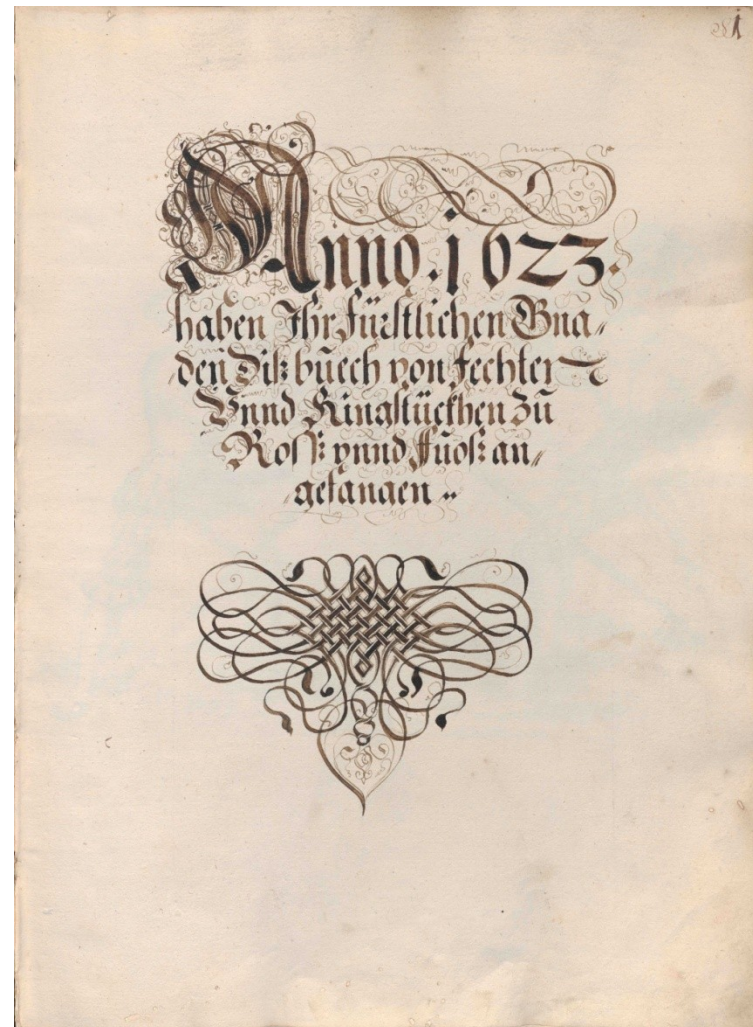 1
Anno. 1623.
haben Ihr Fürstlichen Gna⸗
den Diß buech von fechter
Vnnd Ringstückhen Zu
Ross: vnnd Fuoß an⸗
gefangen